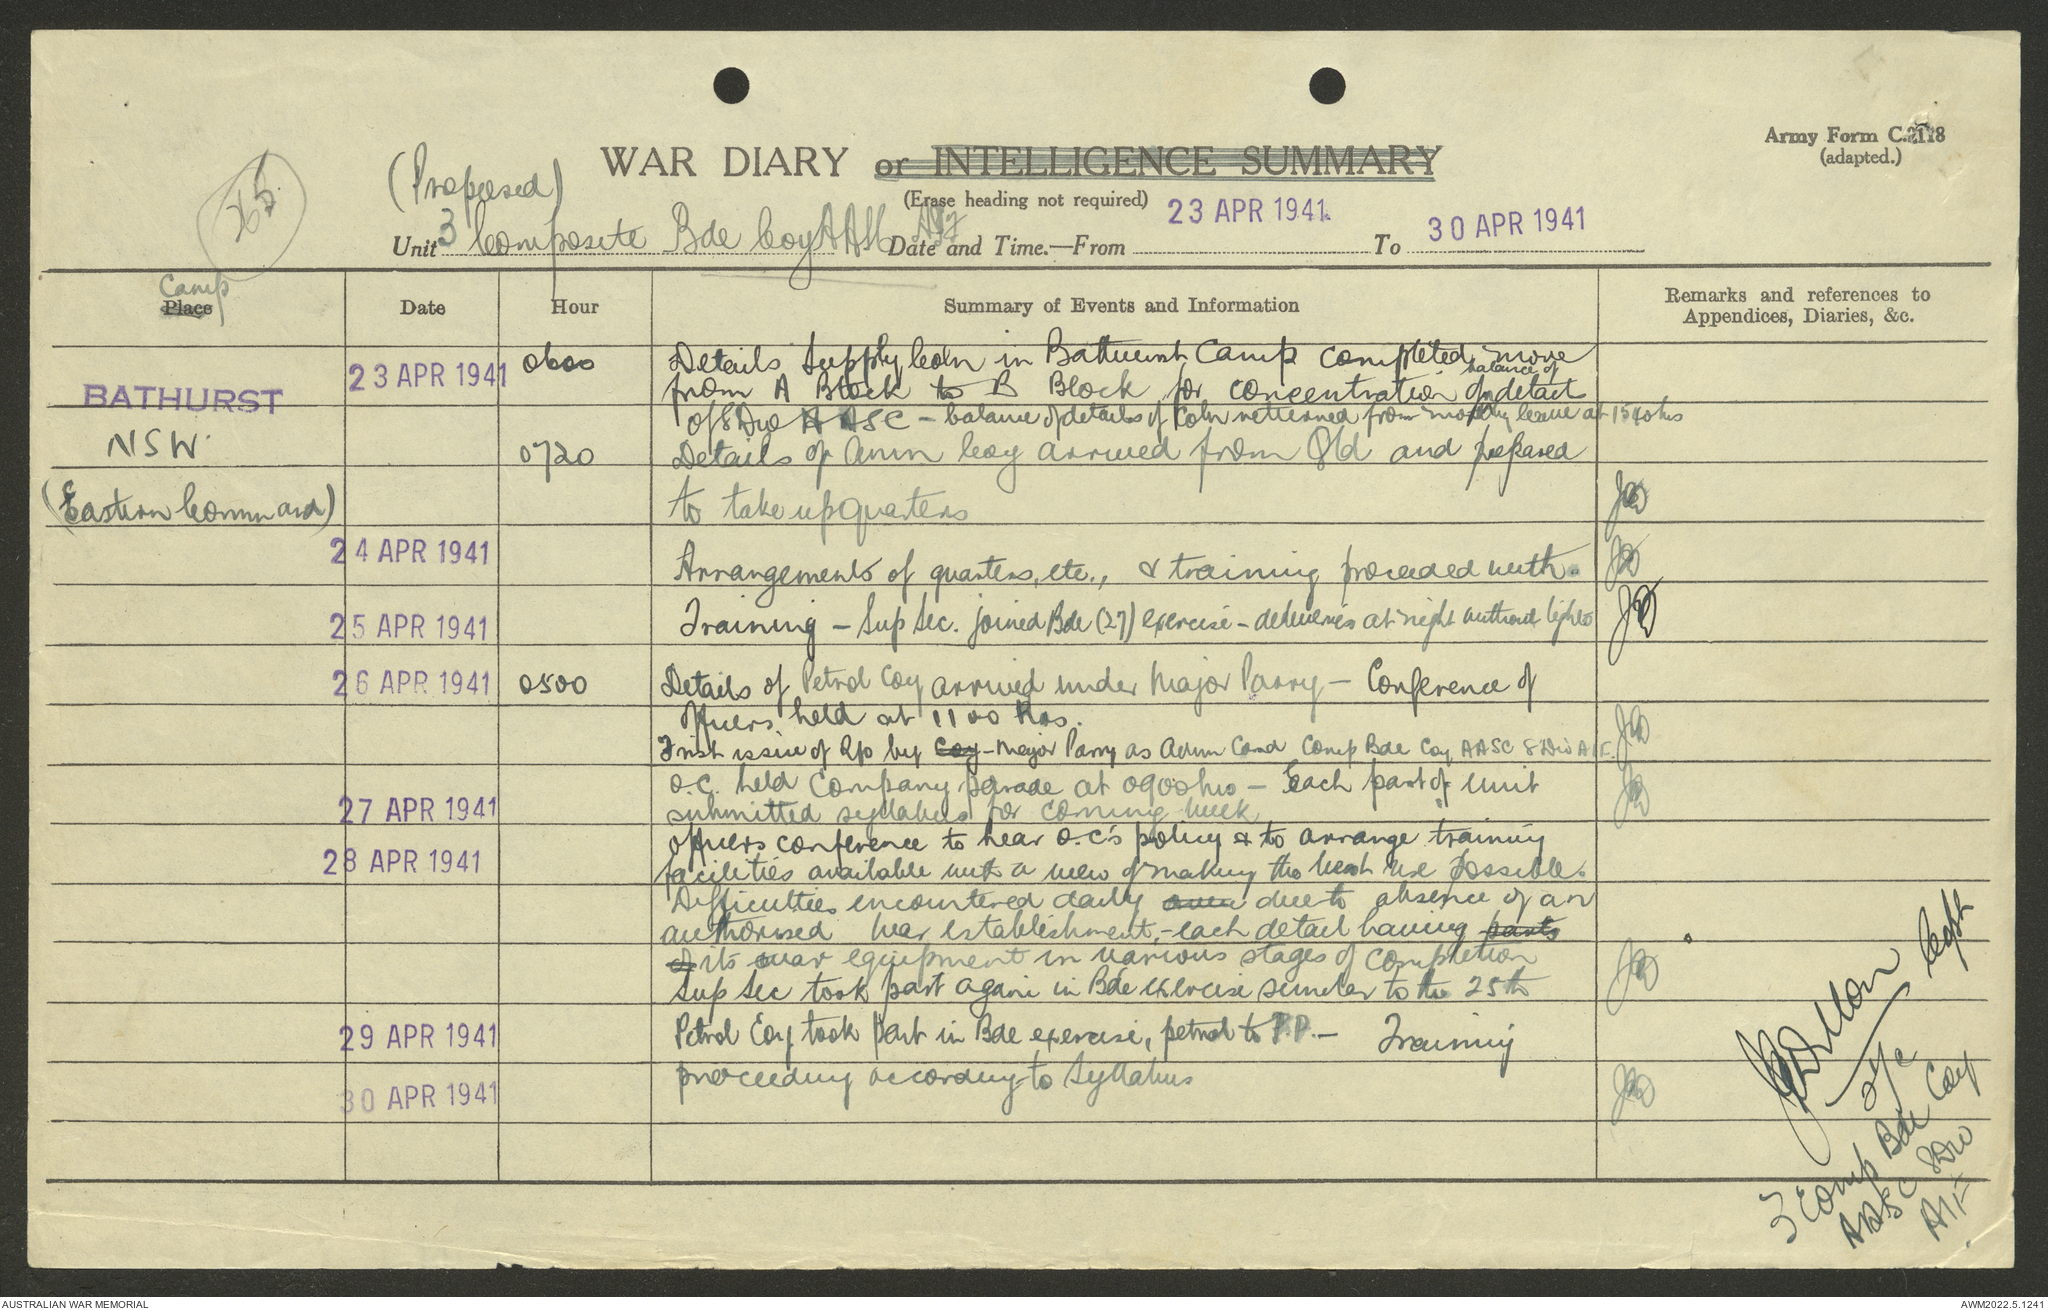 Army Form C.2118
(adapted.)
65
(Proposed)
WAR DIARY or INTELLIGENCE SUMMARY
(Erase heading not required)
Unit 3 Composite Bde Coy AASC AIF Date and Time.—From 23 APR 1941. To 30 APR 1941
Camp
Place Date Hour Summary of Events and Information Remarks and references to Appendices, Diaries, &c.
BATHURST
NSW.
(Eastern Command)
23 APR 1941 0600 Details Supply Coln in Bathurst Camp completed move
from A Block to B Block for concentration of balance of details
of 8 Div AASC - balance of details of Coln returned from leave at 1540 hrs
0720 Details of Amm Coy arrived from Qld and prepared
to take up quarters
24 APR 1941 Arrangements of quarters, etc., & training proceeded with.
25 APR 1941 Training - Sup Sec. joined Bde (27) exercise - deliveries at night without lights
26 APR 1941 0500 Details of Petrol Coy arrived under Major Parry - Conference of
officers held at 1100 hrs.
First issue of R/O by Coy - Major Parry as Adm Comd Comp Bde Coy AASC 8 Div AIF.
27 APR 1941 O.C. held Company parade at 0900 hrs - Each part of unit
submitted syllabus for coming week
28 APR 1941 Officers conference to hear O.C's policy & to arrange training
facilities available with a view of making the best use possible.
Difficulties encountered daily due to absence of an
authorised war establishment, - each detail having parts
of its war equipment in various stages of completion
Sup Sec took part again in Bde exercise similar to the 25th
29 APR 1941 Petrol Coy took part in Bde exercise, petrol to P.P. - Training
30 APR 1941 proceeding according to Syllabus
Capt
O/C
3 Comp Bde Coy
AASC 8 Div
AIF
AUSTRALIAN WAR MEMORIAL
AWM2022.5.1241